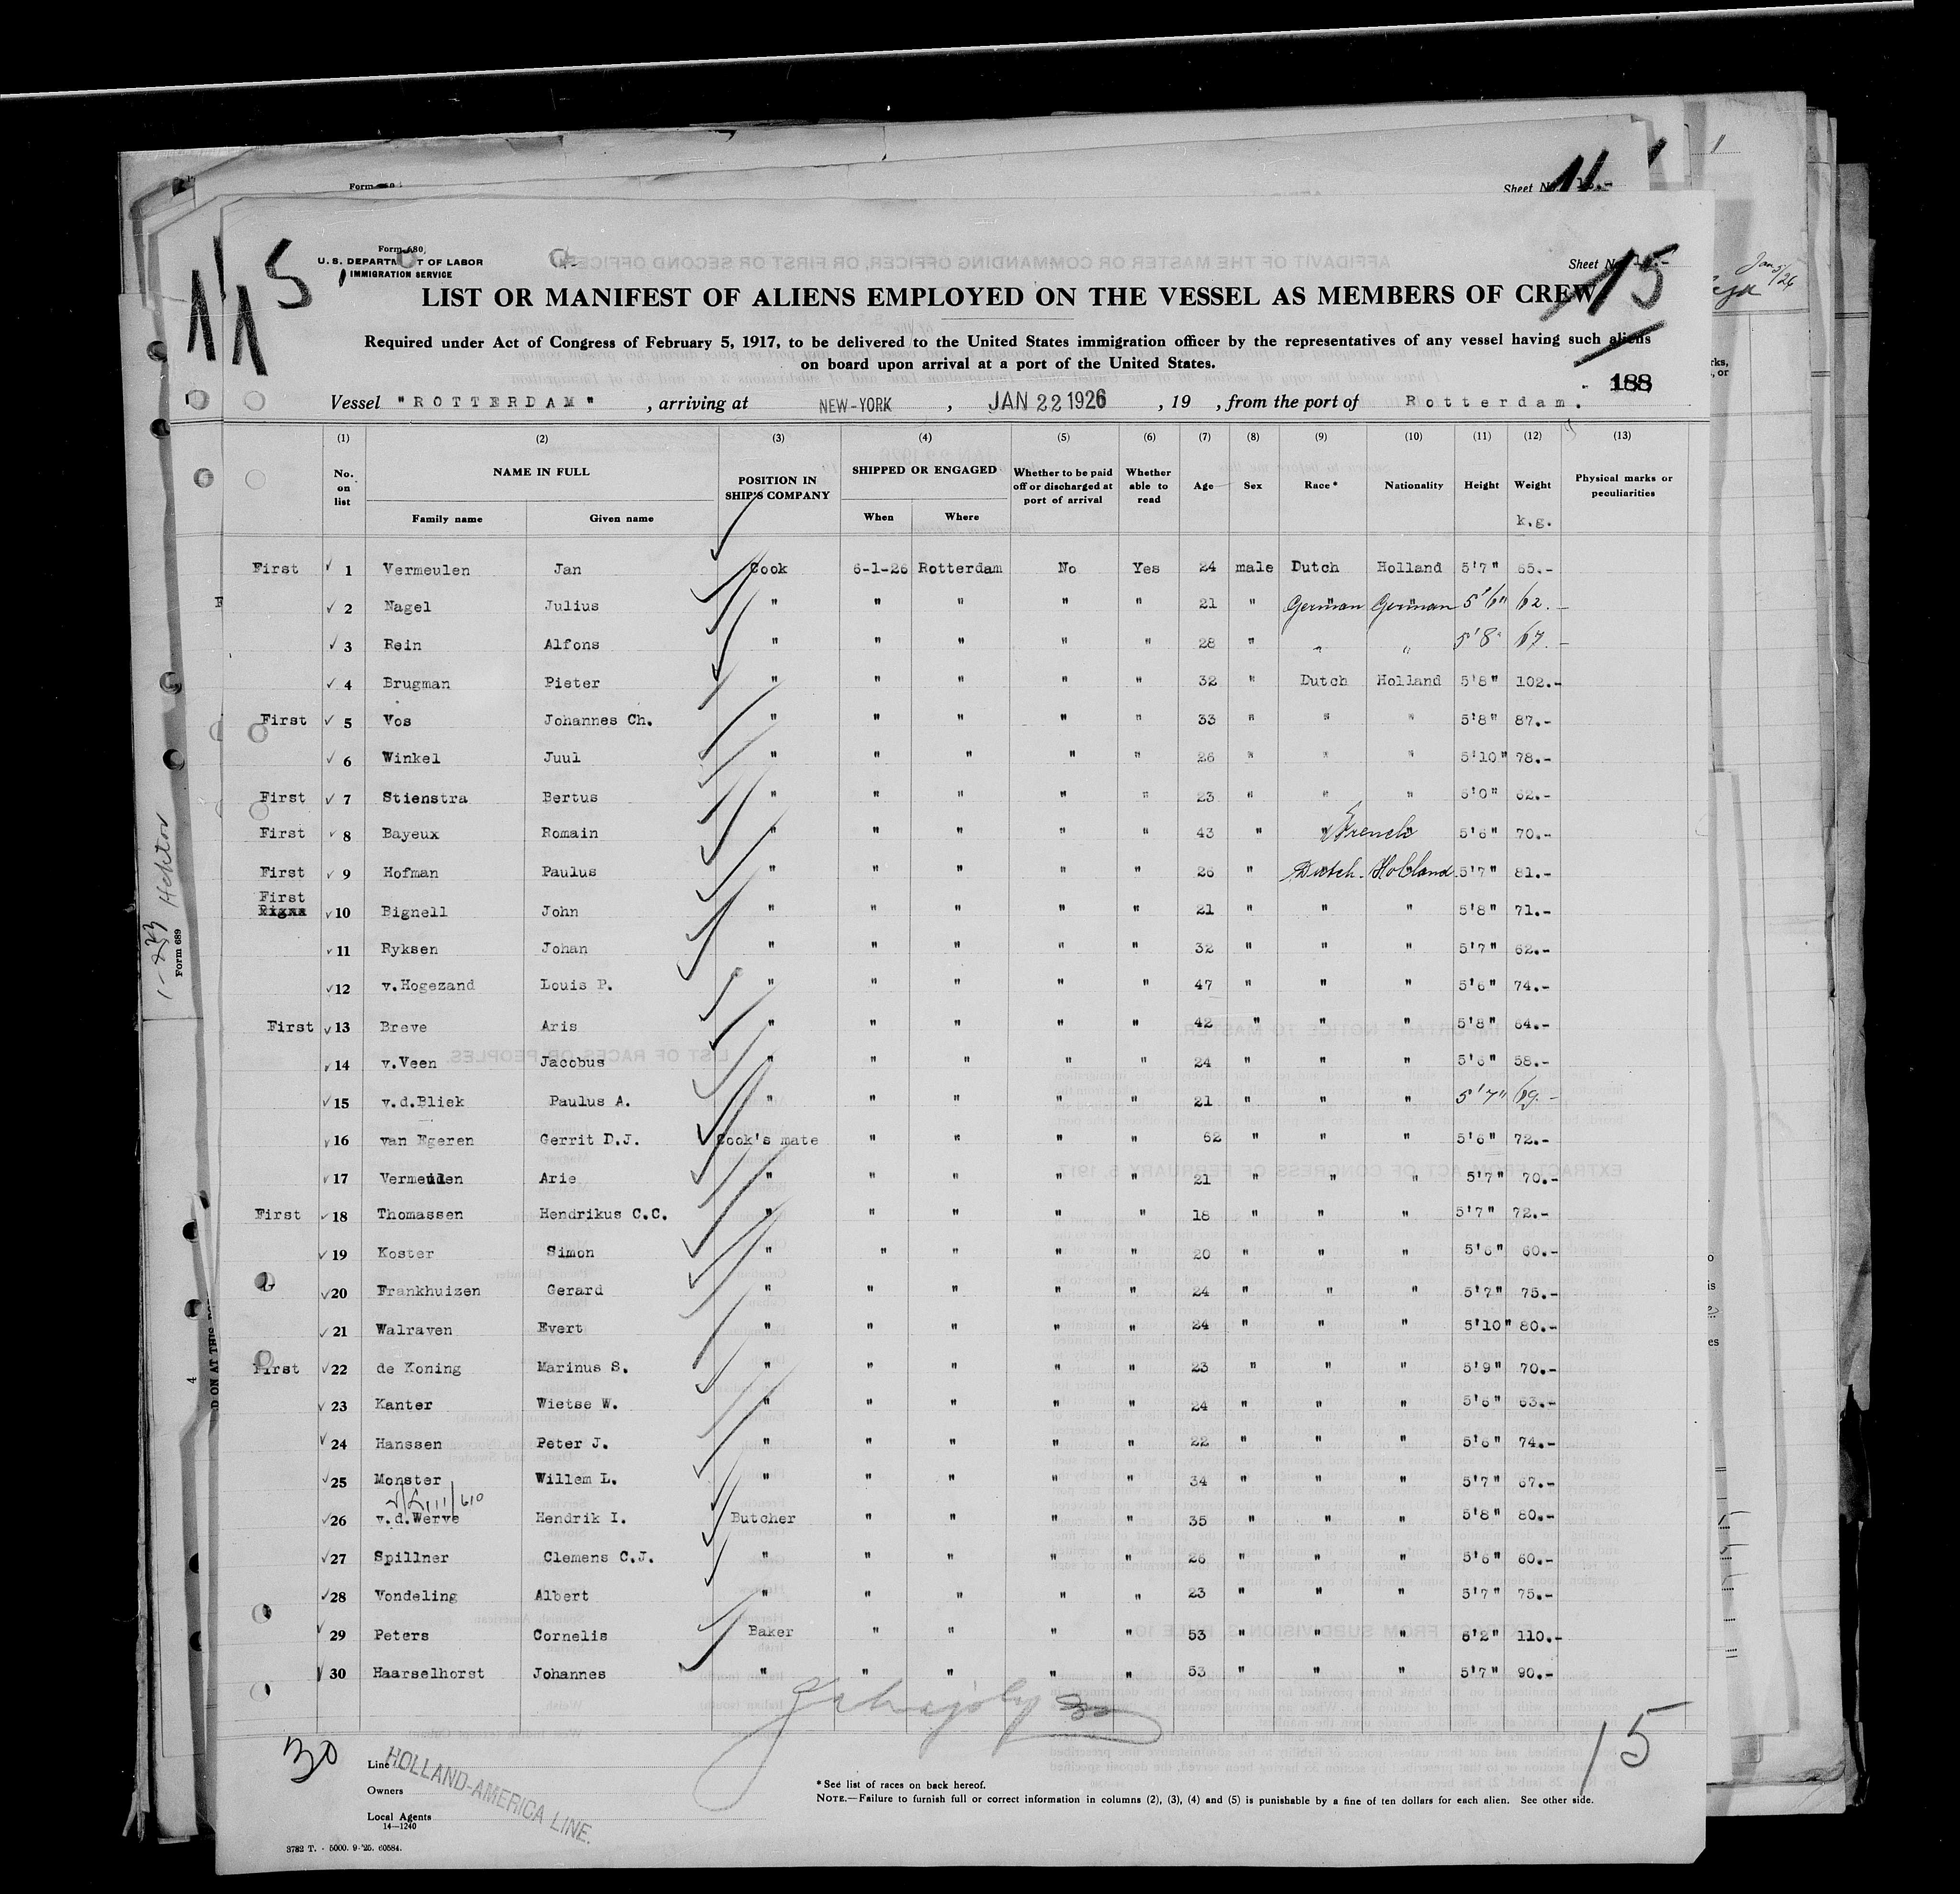 Form 680
Sheet No.
11
Form 680
U. S. DEPARTMENT OF LABOR
IMMIGRATION SERVICE
Sheet No.
115
15
LIST OR MANIFEST OF ALIENS EMPLOYED ON THE VESSEL AS MEMBERS OF CREW
Required under Act of Congress of February 5, 1917, to be delivered to the United States immigration officer by the representatives of any vessel having such aliens
on board upon arrival at a port of the United States.
188
Vessel "ROTTERDAM" , arriving at NEW-YORK , JAN 22 1926 , 19 , from the port of Rotterdam.
(1) (2) (3) (4) (5) (6) (7) (8) (9) (10) (11) (12) (13)
No. on list NAME IN FULL POSITION IN SHIP'S COMPANY SHIPPED OR ENGAGED Whether to be paid off or discharged at port of arrival Whether able to read Age Sex Race* Nationality Height Weight Physical marks or peculiarities
Family name Given name When Where k.g.
First ✓ 1 Vermeulen Jan Cook 6-1-26 Rotterdam No Yes 24 male Dutch Holland 5'7" 65.-
✓ 2 Nagel Julius " " " " " 21 " German German 5'6" 62.-
✓ 3 Rein Alfons " " " " " 28 " " " 5'8" 67.-
✓ 4 Brugman Pieter " " " " " 32 " Dutch Holland 5'8" 102.-
First ✓ 5 Vos Johannes Ch. " " " " " 33 " " " 5'8" 87.-
✓ 6 Winkel Juul " " " " " 26 " " " 5'10" 78.-
First ✓ 7 Stienstra Bertus " " " " " 23 " " " 5'0" 62.-
First ✓ 8 Bayeux Romain " " " " " 43 " French 5'6" 70.-
First ✓ 9 Hofman Paulus " " " " " 26 " Dutch. Holland 5'7" 81.-
First
✓ 10 Bignell John " " " " " 21 " " " 5'8" 71.-
✓ 11 Ryksen Johan " " " " " 32 " " " 5'7" 62.-
✓ 12 v.Hogezand Louis P. " " " " " 47 " " " 5'6" 74.-
First ✓ 13 Breve Aris " " " " " 42 " " " 5'8" 64.-
✓ 14 v.Veen Jacobus " " " " " 24 " " " 5'6" 58.-
✓ 15 v.d.Bliek Paulus A. " " " " " 21 " " " 5'7" 69.-
✓ 16 van Egeren Gerrit D.J. Cook's mate " " " " 52 " " " 5'6" 72.-
✓ 17 Vermeulen Arie " " " " " 21 " " " 5'7" 70.-
First ✓ 18 Thomassen Hendrikus C.C. " " " " " 18 " " " 5'7" 72.-
✓ 19 Koster Simon " " " " " 20 " " " 5'6" 60.-
✓ 20 Frankhuizen Gerard " " " " " 24 " " " 5'7" 75.-
✓ 21 Walraven Evert " " " " " 24 " " " 5'10" 80.-
First ✓ 22 de Koning Marinus S. " " " " " 23 " " " 5'9" 70.-
✓ 23 Kanter Wietse W. " " " " " 24 " " " 5'6" 63.-
✓ 24 Hanssen Peter J. " " " " " 22 " " " 5'6" 74.-
✓ 25 Monster Willem L. " " " " " 34 " " " 5'7" 67.-
✓ 26 v.d.Werve Hendrik I. Butcher " " " " 35 " " " 5'8" 80.-
✓ 27 Spillner Clemens C.J. " " " " " 26 " " " 5'6" 60.-
✓ 28 Vondeling Albert " " " " " 23 " " " 5'7" 75.-
✓ 29 Peters Cornelis Baker " " " " 53 " " " 6'2" 110.-
✓ 30 Haarselhorst Johannes " " " " " 53 " " " 5'7" 90.-
30
15
Line HOLLAND-AMERICA LINE.
Owners
Local Agents
14—1240
* See list of races on back hereof.
NOTE.—Failure to furnish full or correct information in columns (2), (3), (4) and (5) is punishable by a fine of ten dollars for each alien. See other side.
Form 689